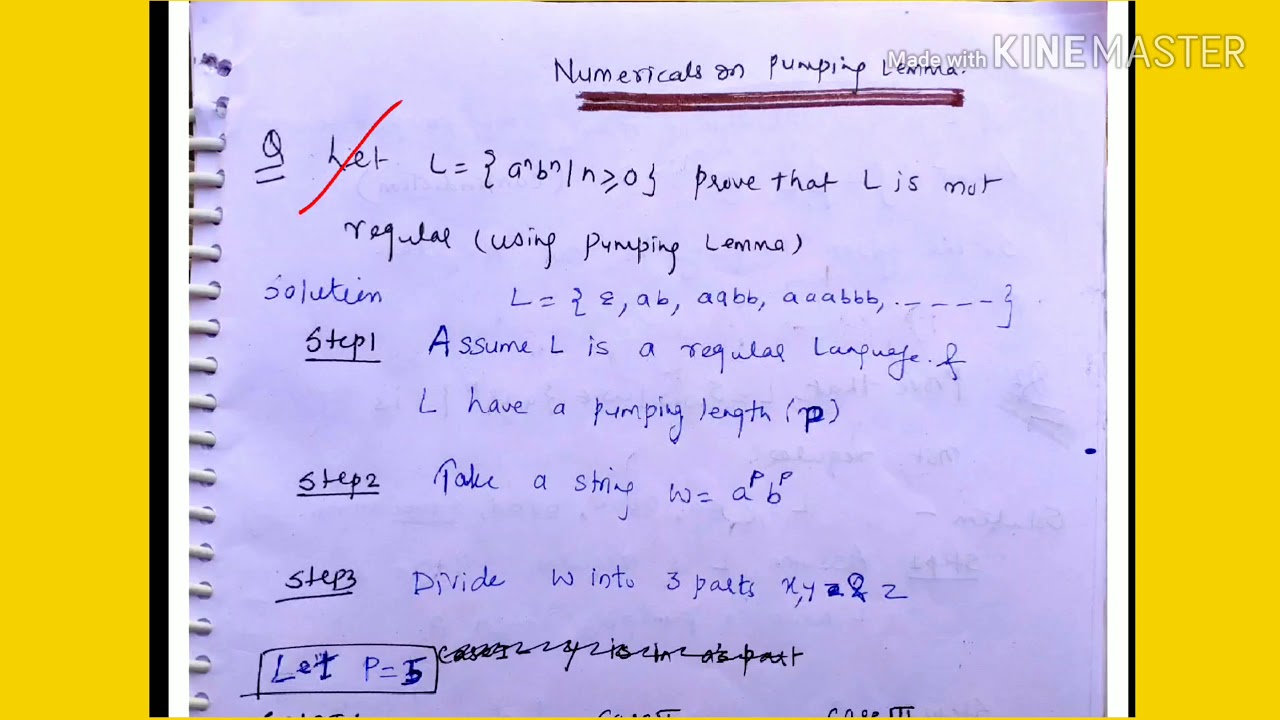 Made with KINEMASTER
Numericals on Pumping Lemma.
Q Let L = { aⁿbⁿ | n ≥ 0 } prove that L is not
regular (using pumping Lemma)
Solution L = { ε, ab, aabb, aaabbb, . - - - - }
Step1 Assume L is a regular Language. &
L have a pumping length (p)
Step2 Take a string w = aᴾbᴾ
Step3 Divide w into 3 parts x, y & z
Let P = 5 Case I - y is in a's part
Case II Case III